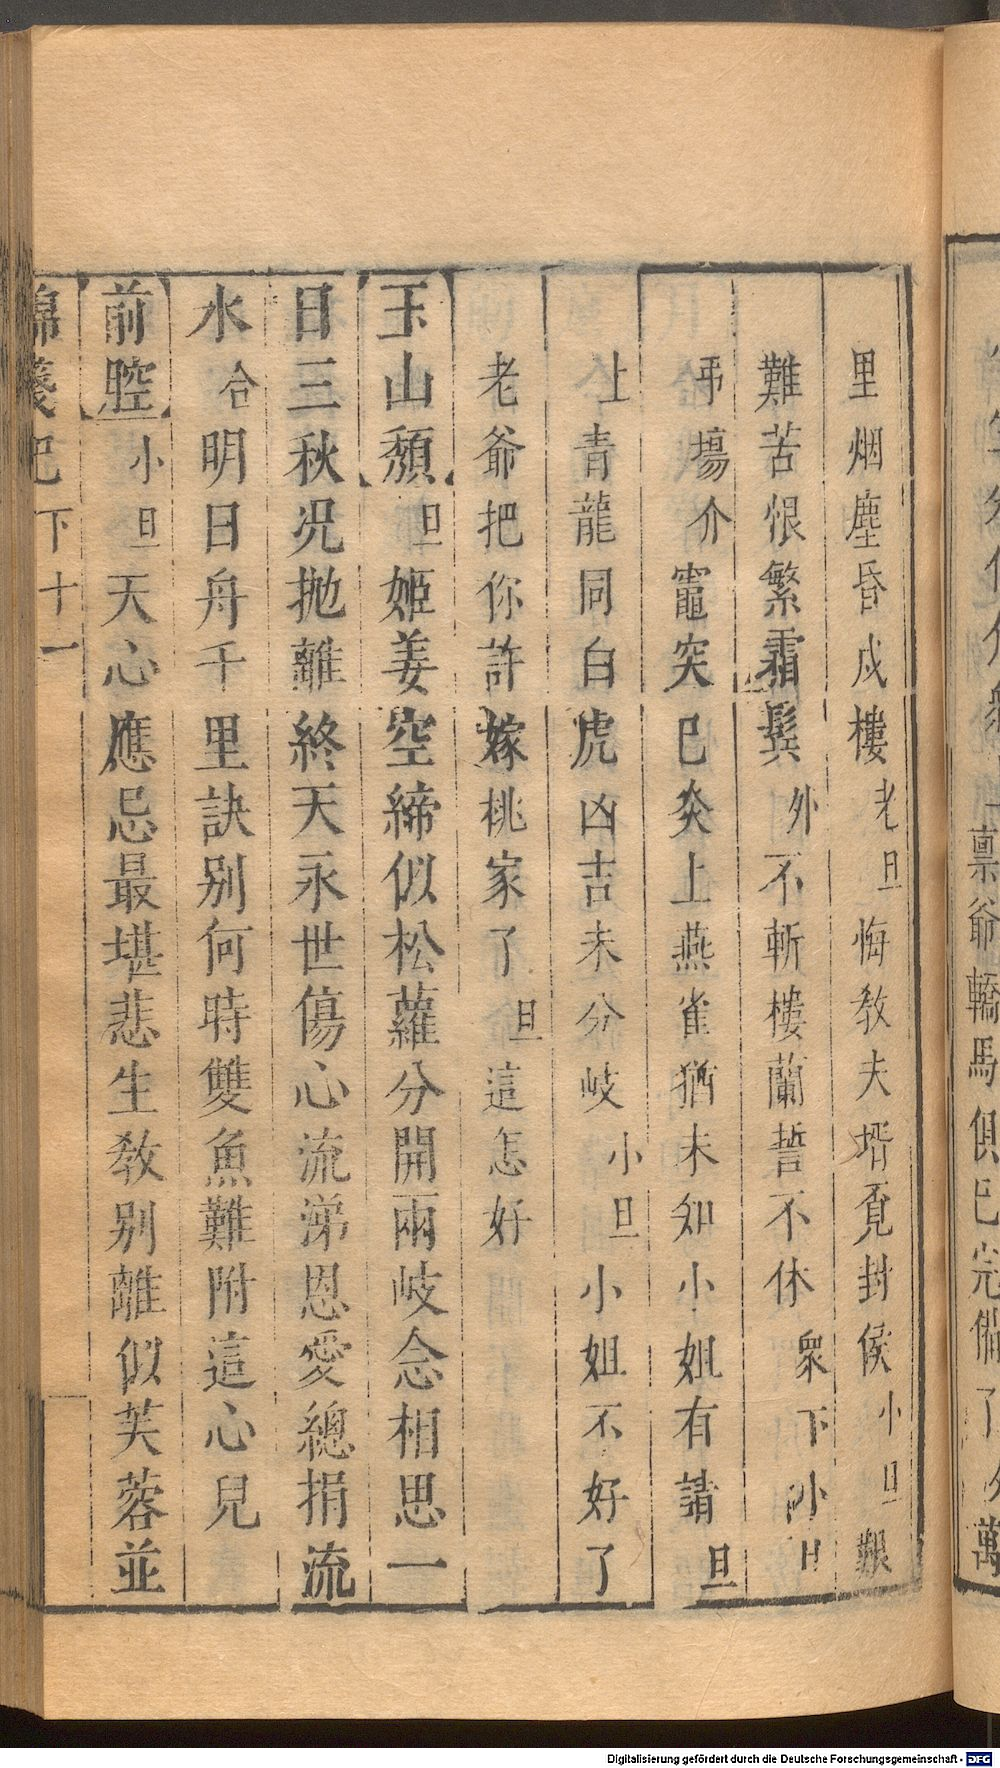 里烟塵昏戍樓老旦悔教夫壻覔封侯小旦艱
難苦恨繁霜鬂外不斬樓蘭誓不休衆下小旦
弔塲介竈突已炎上燕雀猶未知小姐有請旦
上青龍同白虎凶吉未分岐小旦小姐不好了
老爺把你許嫁桃家了旦這怎好
玉山頹旦姬姜空締似松蘿分開兩岐念相思一
日三秋况拋離終天永世傷心流涕恩愛總捐流
水合明日舟千里訣别何時雙魚難附這心兒
前腔小旦天心應忌最堪悲生教别離似芙蓉並
錦箋記下十一
稟爺轎馬俱已完備了
萬
Digitalisierung gefördert durch die Deutsche Forschungsgemeinschaft - DFG